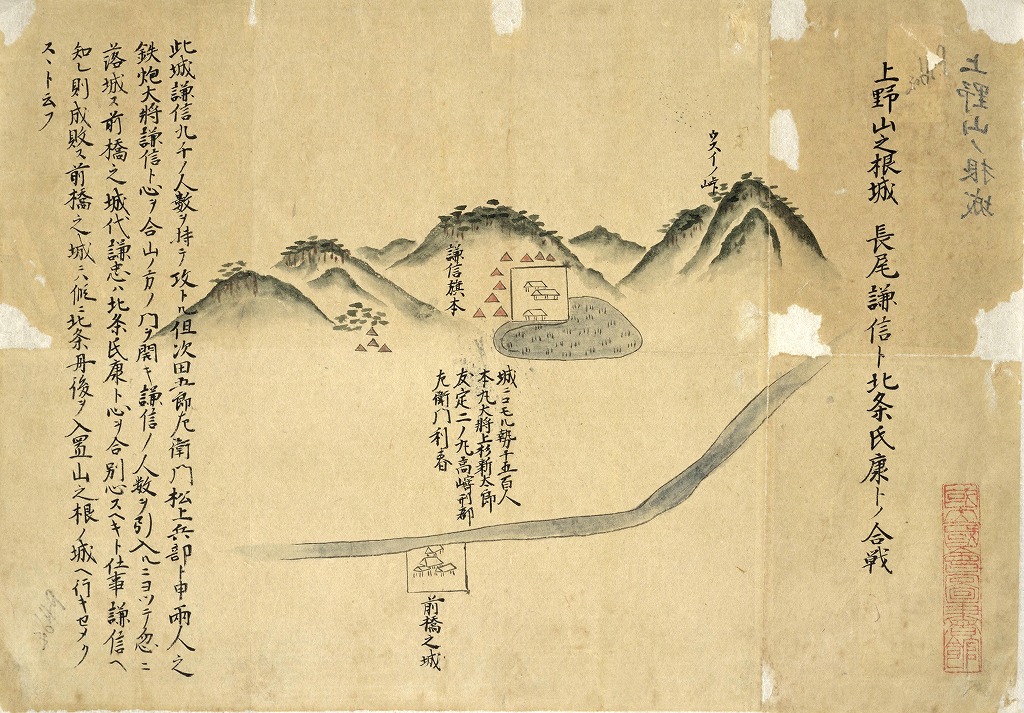 上野山ノ根城
上野山之根城 長尾謙信ト北条氏康トノ合戦
ウスイノ峠
謙信旗本
城ニコモル勢千五百人
本丸大将上杉新太郎
友定二ノ丸高崎刑部
左衛門利春
前橋之城
此城謙信九千ノ人数ヲ持テ攻トル但次田五郎左衛門松上兵部ト申両人之
鉄炮大将謙信ト心ヲ合山ノ方ノ門ヲ開キ謙信ノ人数ヲ引入ルニヨツテ忽ニ
落城ス前橋之城代謙忠ハ北条氏康ト心ヲ合別心スヘキト仕事謙信ヘ
知レ則成敗ス前橋之城ニハ北条丹後ヲ入置山之根ノ城ヘ行キセメク
スヽト云フ